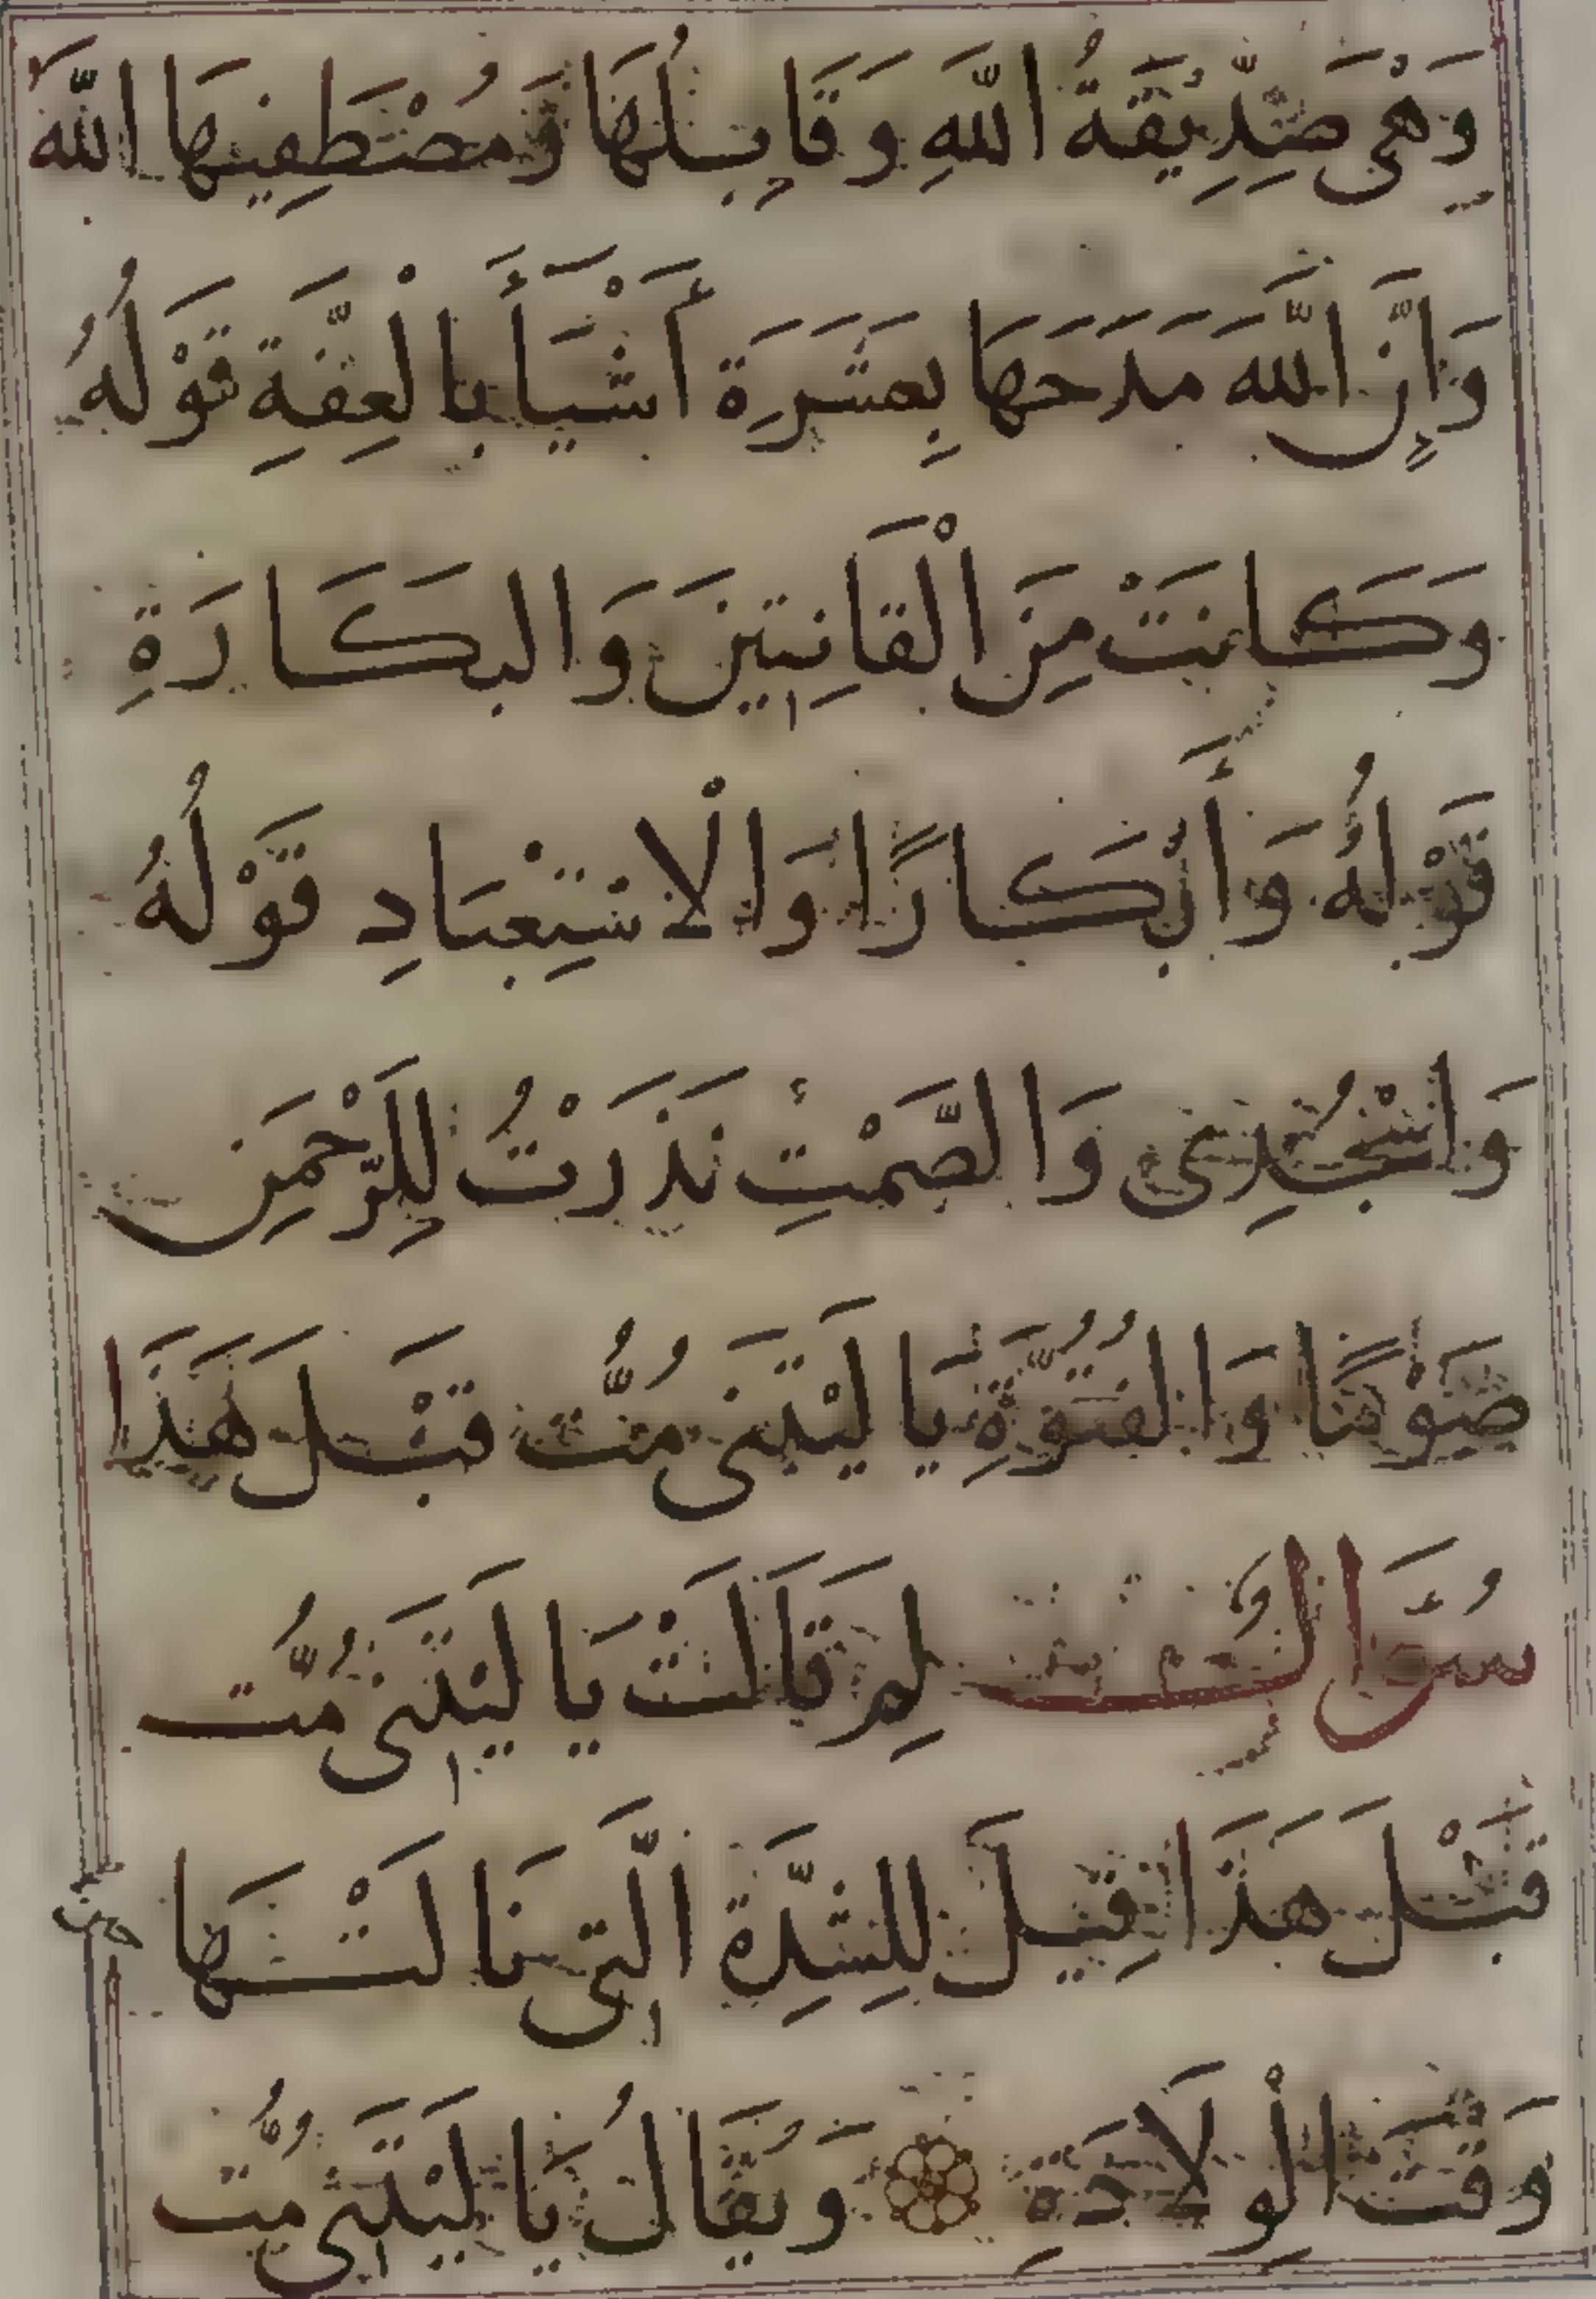 وَهْيَ صِدِّيقَةُ اللَّهِ وَقَابِلُهَا وَمُصْطَفِيهَا اللَّهَ
وَإِنَّ اللَّهَ مَدَحَهَا بِعَشَرَةِ أَشْيَأَ بِالْعِفَّةِ قَوْلُهُ
وَكَانَتْ مِنَ الْقَانِتِينَ وَالبكَارَةِ
قَوْلُهُ وَأَبْكَارًا وَالْاسْتِعْبَادِ قَوْلُهُ
وَاسْجُدِي وَالصَّمْتِ نَذَرْتُ لِلرَّحْمَنِ
صَوْمًا وَالفُتُوَّةِ يَا لَيْتَنِي مُتُّ قَبْلَ هَذَا
سُؤَال لِمَ قَالَتْ يَا لَيْتَنِي مُتُّ
قَبْلَ هَذَا قِيلَ لِلشِّدَّةِ الَّتِي نَالَتْهَا
وَقْتَ الْوِلَادَةِ وَيُقَالُ يَا لَيْتَنِي مُتُّ